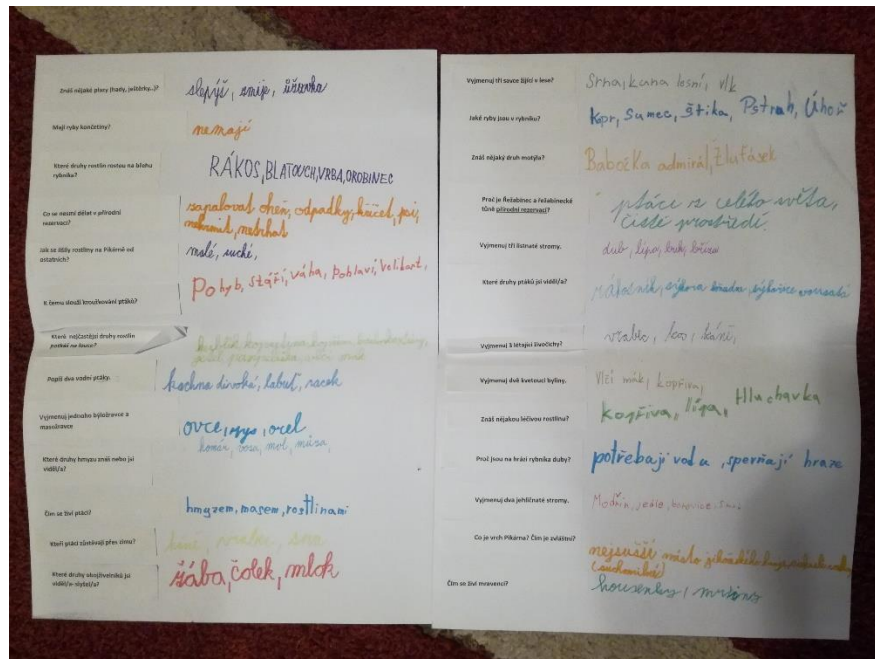 Znáš nějaké plazy (hady, ještěrky..)?
slepýš, zmije, užovka
Mají ryby končetiny?
nemají
Které druhy rostlin rostou na břehu
rybníka?
RÁKOS, BLATOUCH, VRBA, OROBINEC
Co se nesmí dělat v přírodní
rezervaci?
zapalovat oheň, odpadky, křičet, psi,
netrhat
Jak se lišily rostliny na Pikárně od
ostatních?
malé, suché,
K čemu slouží kroužkování ptáků?
Pohyb, stáří, váha, pohlaví, velikost,
Které nejčastější druhy rostlin
Popiš dva vodní ptáky.
kachna divoká, labuť, racek
Vyjmenuj jednoho býložravce a
masožravce
ovce, mys, orel
Které druhy hmyzu znáš nebo jsi
viděl/a?
komár, vosa, mol, můra,
Čím se živí ptáci?
hmyzem, masem, rostlinami
Kteří ptáci zůstávají přes zimu?
káně, vrabec,
Které druhy obojživelníků jsi
viděl/a-slyšel/a?
žába, čolek, mlok
Vyjmenuj tři savce žijící v lese?
Srna, kuna lesní, vlk
Jaké ryby jsou v rybníku?
kapr, Sumec, štika, Pstruh, Úhoř
Znáš nějaký druh motýla?
Babočka admirál, Žluťásek
Proč je Řežabinec a řežabinecké
tůně přírodní rezervací?
ptáce z celého světa,
čisté prostředí.
Vyjmenuj tři listnaté stromy.
dub, lípa, buk, bříza
Které druhy ptáků jsi viděl/a?
rákosník, sýkora
Vyjmenuj 3 létající živočichy?
vrabec, kos, káně,
Vyjmenuj dvě kvetoucí byliny.
Vlčí mák, kopřiva,
Znáš nějakou léčivou rostlinu?
kopřiva, lípa, Hluchavka
Proč jsou na hrázi rybníka duby?
potřebají vodu, sperňají hraze
Vyjmenuj dva jehličnaté stromy.
Modřín, jedle, borovice, smrk
Co je vrch Pikárna? Čím je zvláštní?
nejsušší místo
Čím se živí mravenci?
housenky, mršiny